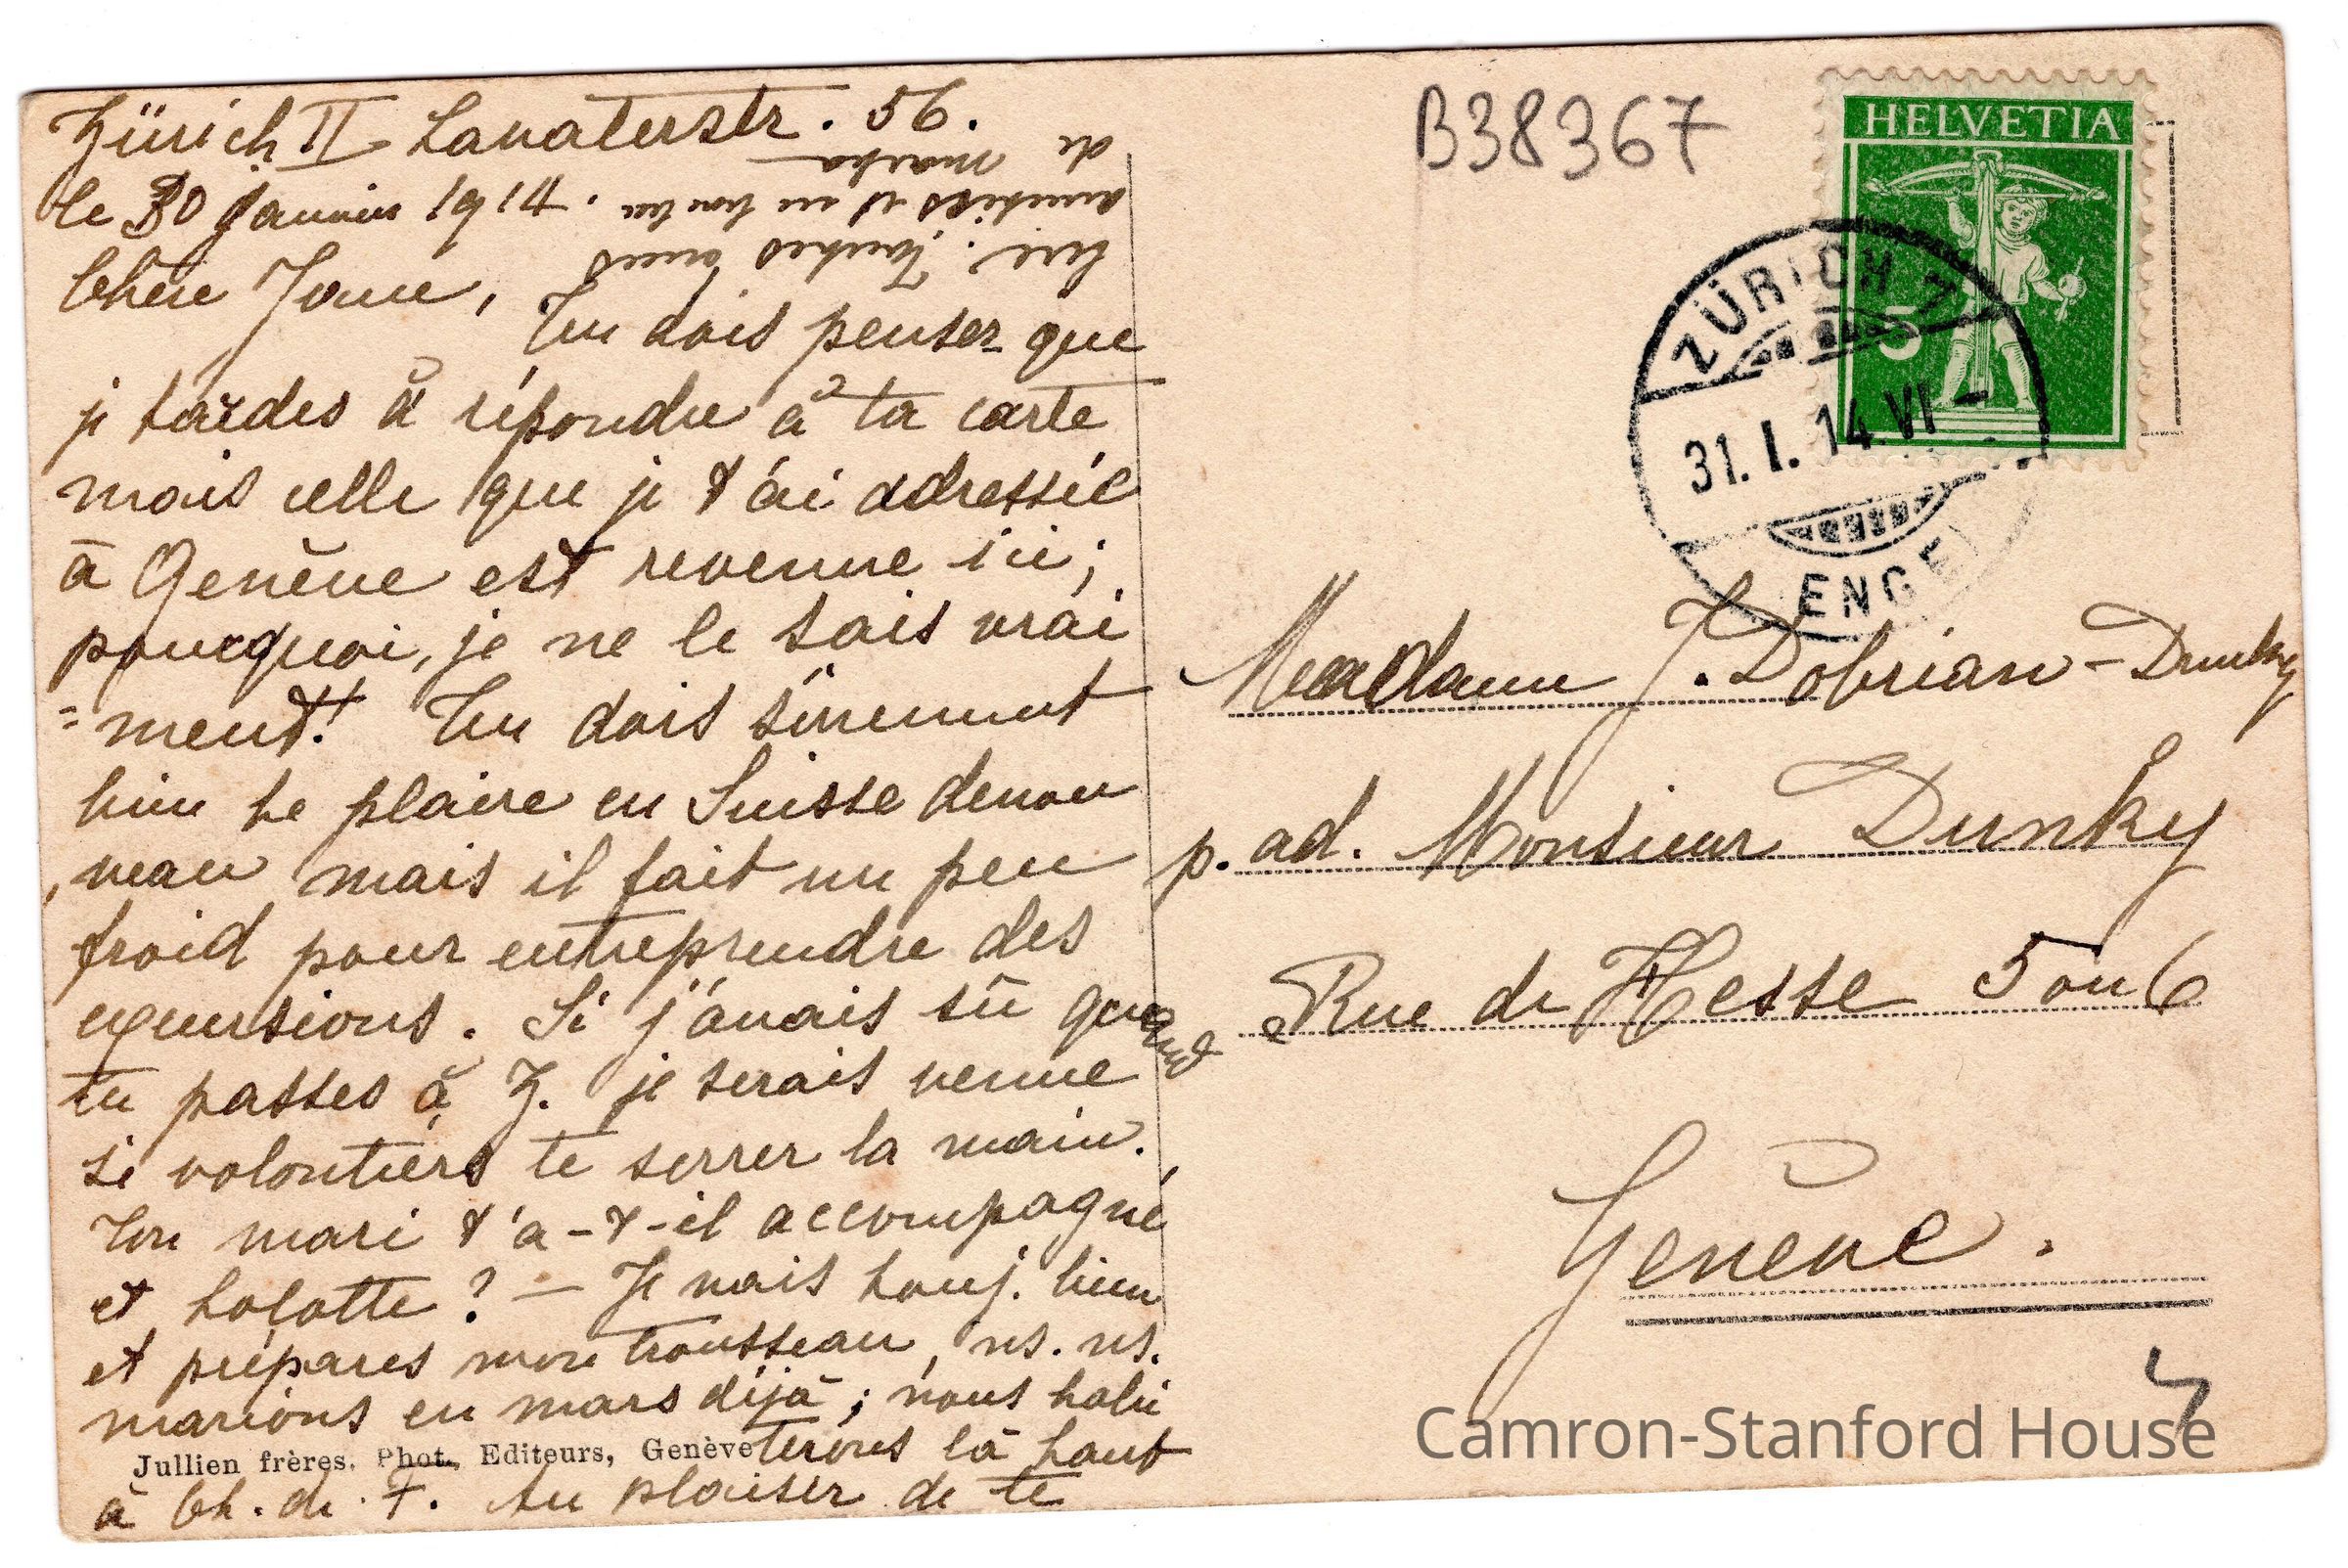 Zürich II Lavaterstr. 56.
le 30 Janvier 1914.
Chère Jane,
Tu dois penser que
je tardes à répondre à ta carte
mais celle que je t'ai adressée
à Genève est revenue ici;
pourquoi, je ne le sais vrai
=ment! Tu dois sûrement
bien te plaire en Suisse denou
veau mais il fait un peu
froid pour entreprendre des
excursions. Si j'avais su quand
tu passes à Z. je serais venue
si volontiers te serrer la main.
Ton mari t'a-t-il accompagné
et Lolotte? — Je vais touj. bien
et prépares mon trousseau, ns. ns.
marions en mars déjà; nous habi
terons là haut
à Ch. de F. Au plaisir de te
lire. Tendres
amitiés et un
de
Jullien frères, Phot. Editeurs, Genève
B38367
HELVETIA
5
ZÜRICH 7
31.I.14.VI-
ENGE
Madame J. Dobrian-Dunky
p. ad. Monsieur Dunky
Rue de Hesse 5 ou 6
Genève.
Camron-Stanford House